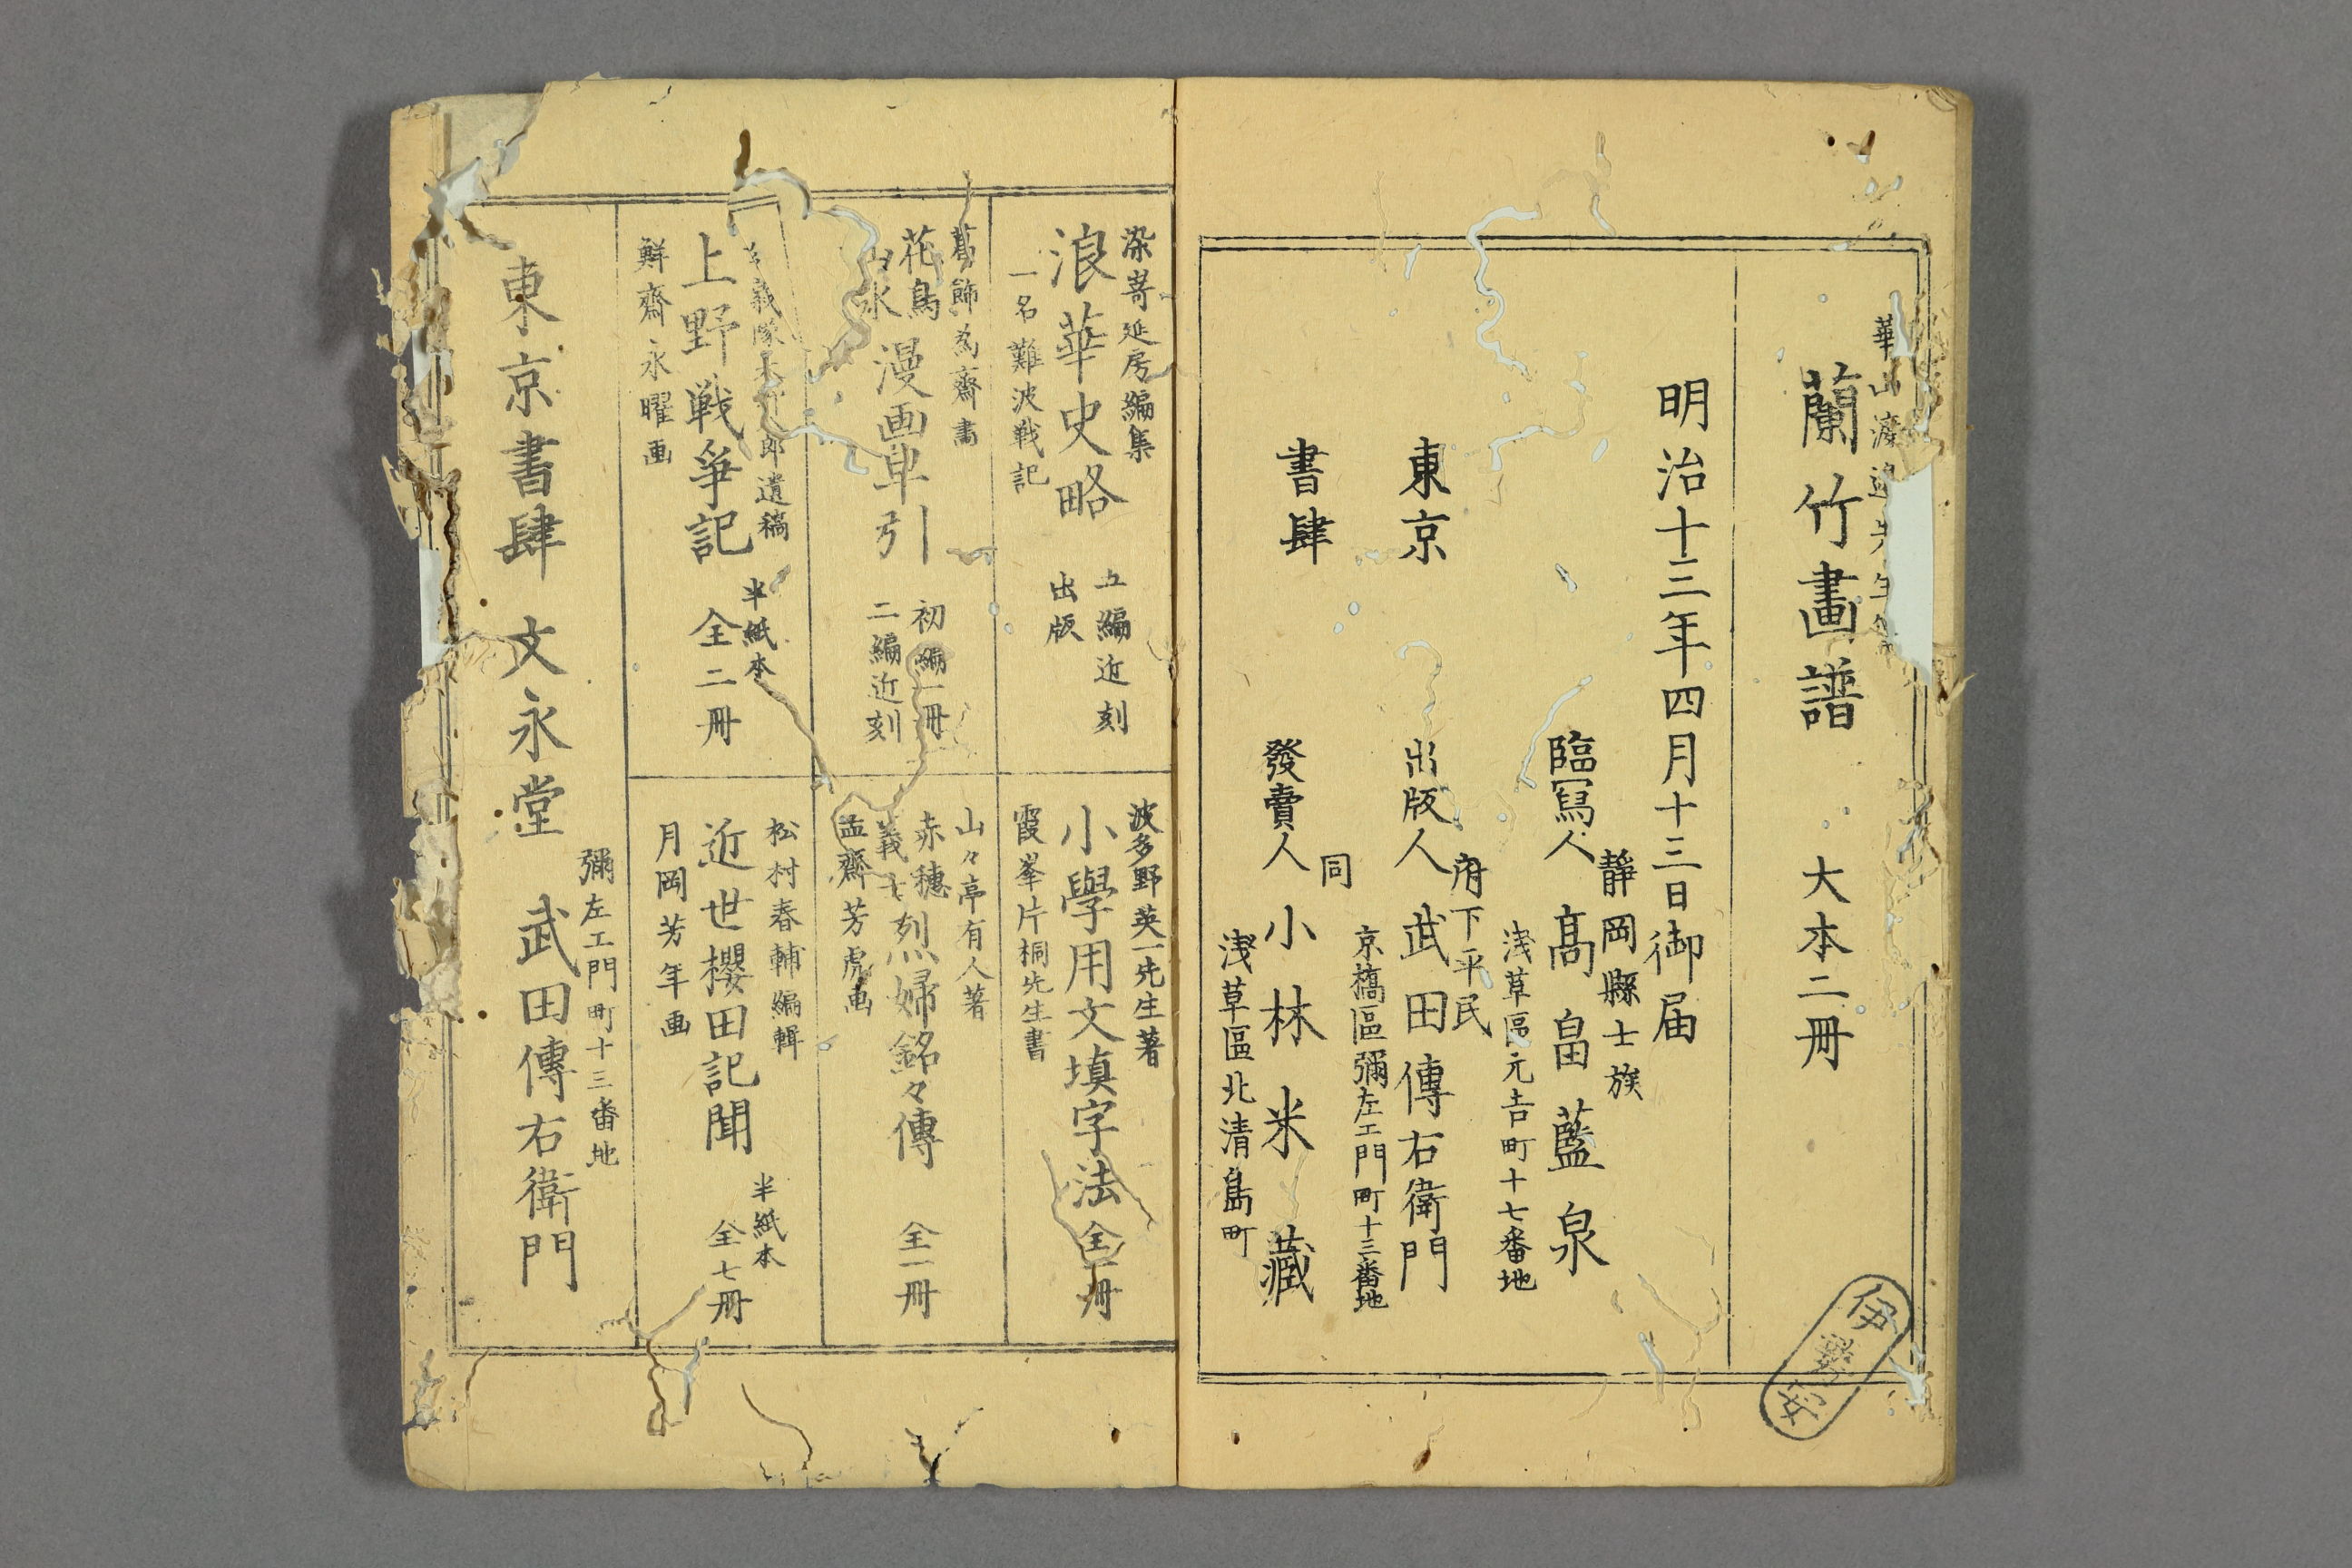 華山渡邉先生
蘭竹畫譜 大本二冊
明治十三年四月十三日御届
静岡縣士族
臨寫人 髙畠藍泉
浅草區元吉町十七番地
府下平民
東京 出版人 武田傳右衛門
京橋區彌左エ門町十三番地
同
書肆 發賣人 小林米藏
浅草區北清島町
伊
染嵜延房編集
浪華史略 五編近刻 出版
一名難波戦記
波多野英一先生著
小學用文填字法 全一冊
霞峯片桐先生書
葛飾為齋畫
花鳥山水漫画早引 初編一冊 二編近刻
山々亭有人著
赤穗義士烈婦銘々傳 全一冊
孟齋芳虎画
義隊 郎遺稿
上野戦争記 半紙本 全二冊
鮮齋永曜画
松村春輔編輯
近世櫻田記聞 半紙本 全七冊
月岡芳年画
彌左エ門町十三番地
東京書肆 文永堂 武田傳右衛門